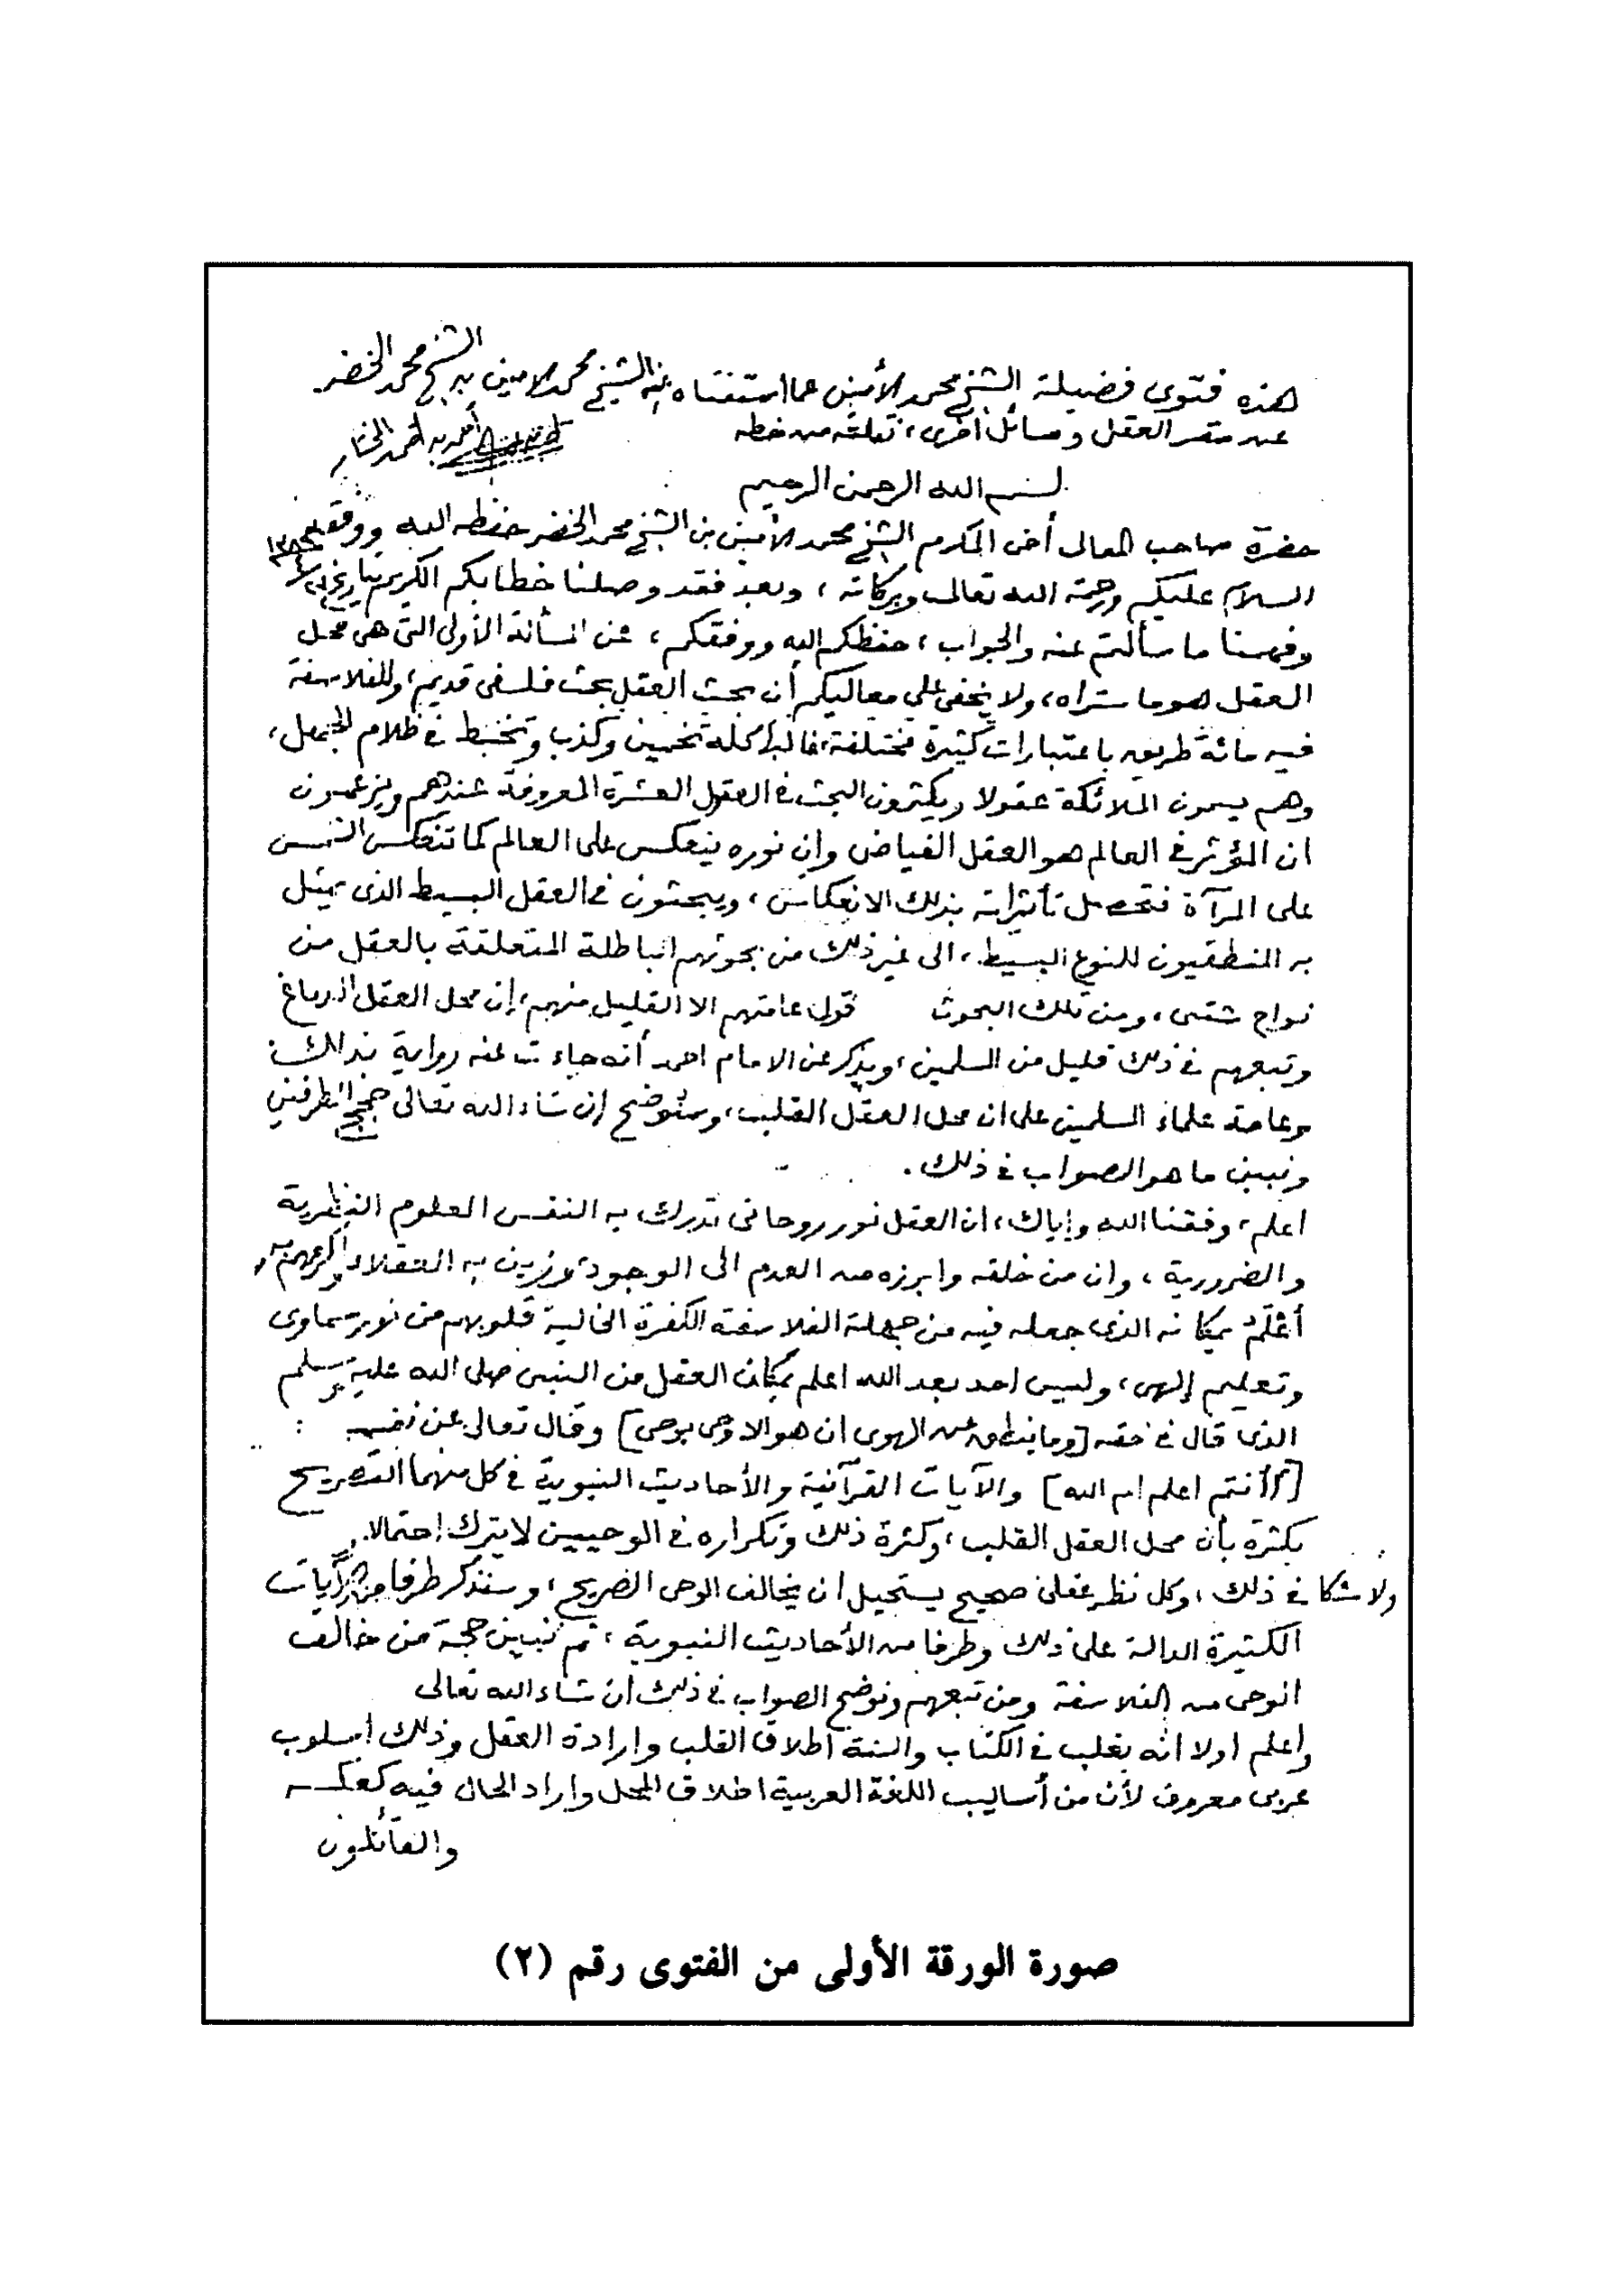 هذه فتوى فضيلة الشيخ محمد الأمين عما استفتاه عنه الشيخ محمد الامين بن الشيخ محمد الخضر
عن مقر العقل ومسائل أخرى، نقلته من خطه أحمد بن أحمد المختار
بسم الله الرحمن الرحيم
حضرة صاحب المعالى أخى المكرم الشيخ محمد الأمين بن الشيخ محمد الخضر حفظه الله ووفقه
السلام عليكم ورحمة الله تعالى وبركاته، وبعد فقد وصلنا خطابكم الكريم بتاريخ
وفهمنا ما سألتم عنه والجواب، حفظكم الله ووفقكم، عن المسألة الأولى التى هى محل
العقل هو ما ستراه، ولا يخفى على معاليكم أن بحث العقل بحث فلسفى قديم، وللفلاسفة
فيه مائة طريق باعتبارات كثيرة مختلفة، غالبها كله تخمين وكذب وتخبط فى ظلام الجهل،
وهم يسمون الملائكة عقولا ويكثرون البحث فى العقول العشرة المعروفة عندهم ويزعمون
ان المؤثر فى العالم هو العقل الفياض وان نوره ينعكس على العالم كما تنعكس الشمس
على المرآة فتحصل تأثيراته بذلك الانعكاس، ويبحثون فى العقل البسيط الذى يمثل
به المنطقيون للنوع البسيط، الى غير ذلك من بحوثهم الباطلة المتعلقة بالعقل من
نواح شتى، ومن تلك البحوث قول عامتهم الا القليل منهم، إن محل العقل الدماغ
وتبعهم فى ذلك قليل من المسلمين، ويذكر عن الامام احمد أنه جاءت عنه رواية بذلك
وعامة علماء المسلمين على ان محل العقل القلب، وسنوضح إن شاء الله تعالى حجج الطرفين
ونبين ما هو الصواب فى ذلك.
اعلم، وفقنا الله وإياك، ان العقل نور روحانى تدرك به النفس العلوم النظرية
والضرورية، وان من خلقه وابرزه من العدم الى الوجود وزين به العقلاء وأكرمهم به،
أعلم بمكانه الذى جعله فيه من جهلة الفلاسفة الكفرة الخالية قلوبهم من نور سماوى
وتعليم إلهى، وليس احد بعد الله اعلم بمكان العقل من النبى صلى الله عليه وسلم
الذى قال فى حقه [وما ينطق عن الهوى ان هو الا وحى يوحى] وقال تعالى عن نفسه :
[أأنتم اعلم ام الله] والآيات القرآنية والأحاديث النبوية فى كل منهما التصريح
بكثرة بأن محل العقل القلب، وكثرة ذلك وتكراره فى الوحيين لا يترك احتمالا
ولا شكا فى ذلك، وكل نظر عقلى صحيح يستحيل ان يخالف الوحى الصريح، وسنذكر طرفا من الآيات
الكثيرة الدالة على ذلك وطرفا من الأحاديث النبوية، ثم نبين حجة من خالف
الوحى من الفلاسفة ومن تبعهم ونوضح الصواب فى ذلك ان شاء الله تعالى
واعلم اولا انه يغلب فى الكتاب والسنة اطلاق القلب وارادة العقل وذلك اسلوب
عربى معروف لأن من أساليب اللغة العربية اطلاق المحل وإراد الحال فيه كعكسه
والقائلون
صورة الورقة الأولى من الفتوى رقم (٢)